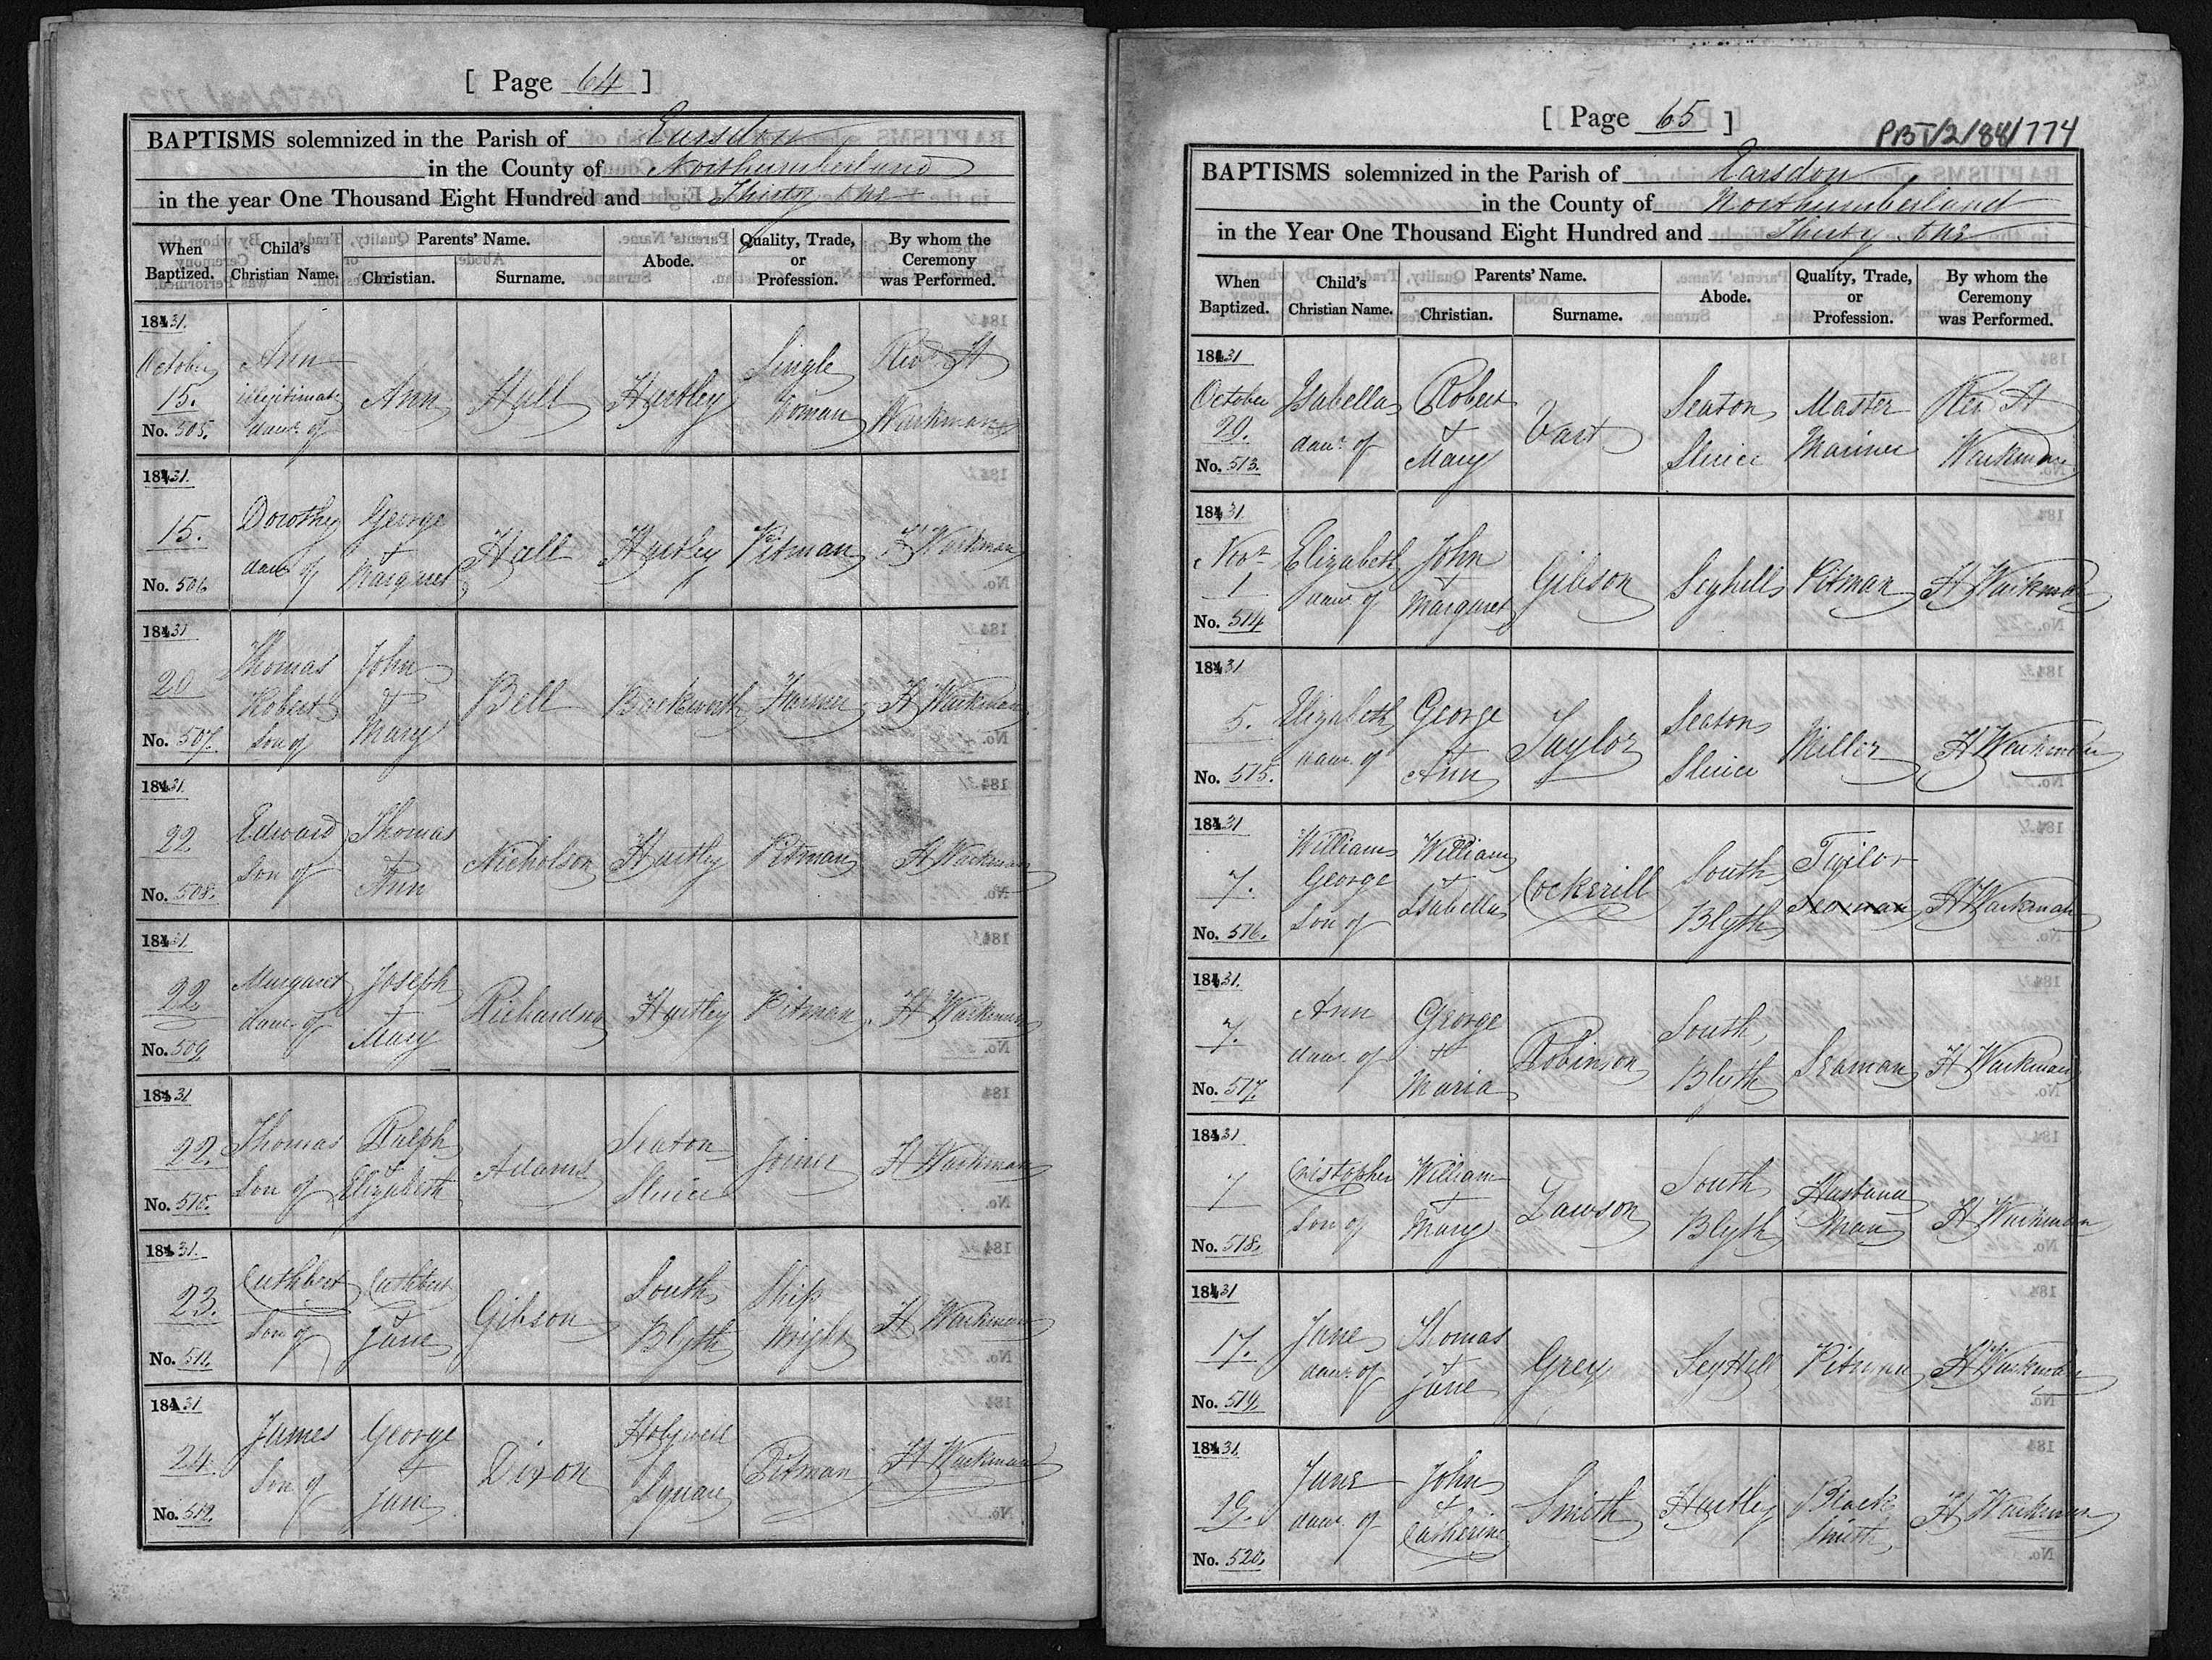 [ Page 64 ]
BAPTISMS solemnized in the Parish of Earsdon
in the County of Northumberland
in the year One Thousand Eight Hundred and Thirty One
When Baptized. Child's Christian Name. Parents' Name. Christian. Surname. Abode. Quality, Trade, or Profession. By whom the Ceremony was Performed.
1831.
October 15. No. 505. Ann illegitimate daur. of Ann Hall Hartley Single Woman Revd. H Warkman
1831.
15. No. 506 Dorothy daur of George + Margaret Hall Hartley Pitman H Warkman
1831
20 No. 507. Thomas Robert Son of John + Mary Bell Backworth Farmer H Warkman
1831.
22. No. 508. Edward Son of Thomas + Ann Nicholson Hartley Pitman H Warkman
1831.
22 No. 509. Margaret daur. of Joseph + Mary Richardson Hartley Pitman H Warkman
1831
22. No. 510. Thomas Son of Ralph + Elizabeth Adams Seaton Sluice Joiner H Warkman
1831.
23. No. 511. Cuthbert Son of Cuthbert + Jane Gibson South Blyth Ship Wright H Warkman
1831
24. No. 512. James Son of George + Jane Dixon Holywell Square Pitman H Warkman
[ Page 65 ]
PBT/2/84/774
BAPTISMS solemnized in the Parish of Earsdon
in the County of Northumberland
in the Year One Thousand Eight Hundred and Thirty One
When Baptized. Child's Christian Name. Parents' Name. Christian. Surname. Abode. Quality, Trade, or Profession. By whom the Ceremony was Performed.
1831
October 29. No. 513. Isabella daur. of Robert + Mary Vart Seaton Sluice Master Mariner Rev H Warkman
1831.
Novr 1 No. 514 Elizabeth daur of John + Margaret Gibson Seghill Pitman H Warkman
1831
5. No. 515. Elizabeth daur. of George + Ann Taylor Seaton Sluice Miller H Warkman
1831
7. No. 516. William George Son of William + Isabella Cockerill South Blyth Tailor Seaman H Warkman
1831.
7. No. 517. Ann daur. of George + Maria Robinson South Blyth Seaman H Warkman
1831
7 No. 518. Cristopher Son of William + Mary Lawson South Blyth Husband Man H Warkman
1831
17. No. 519. Jane daur. of Thomas + Jane Grey SeyHill Pitman H Warkman
1831.
19. No. 520. Jane daur. of John + Catherine Smith Hartley Black Smith H Warkman